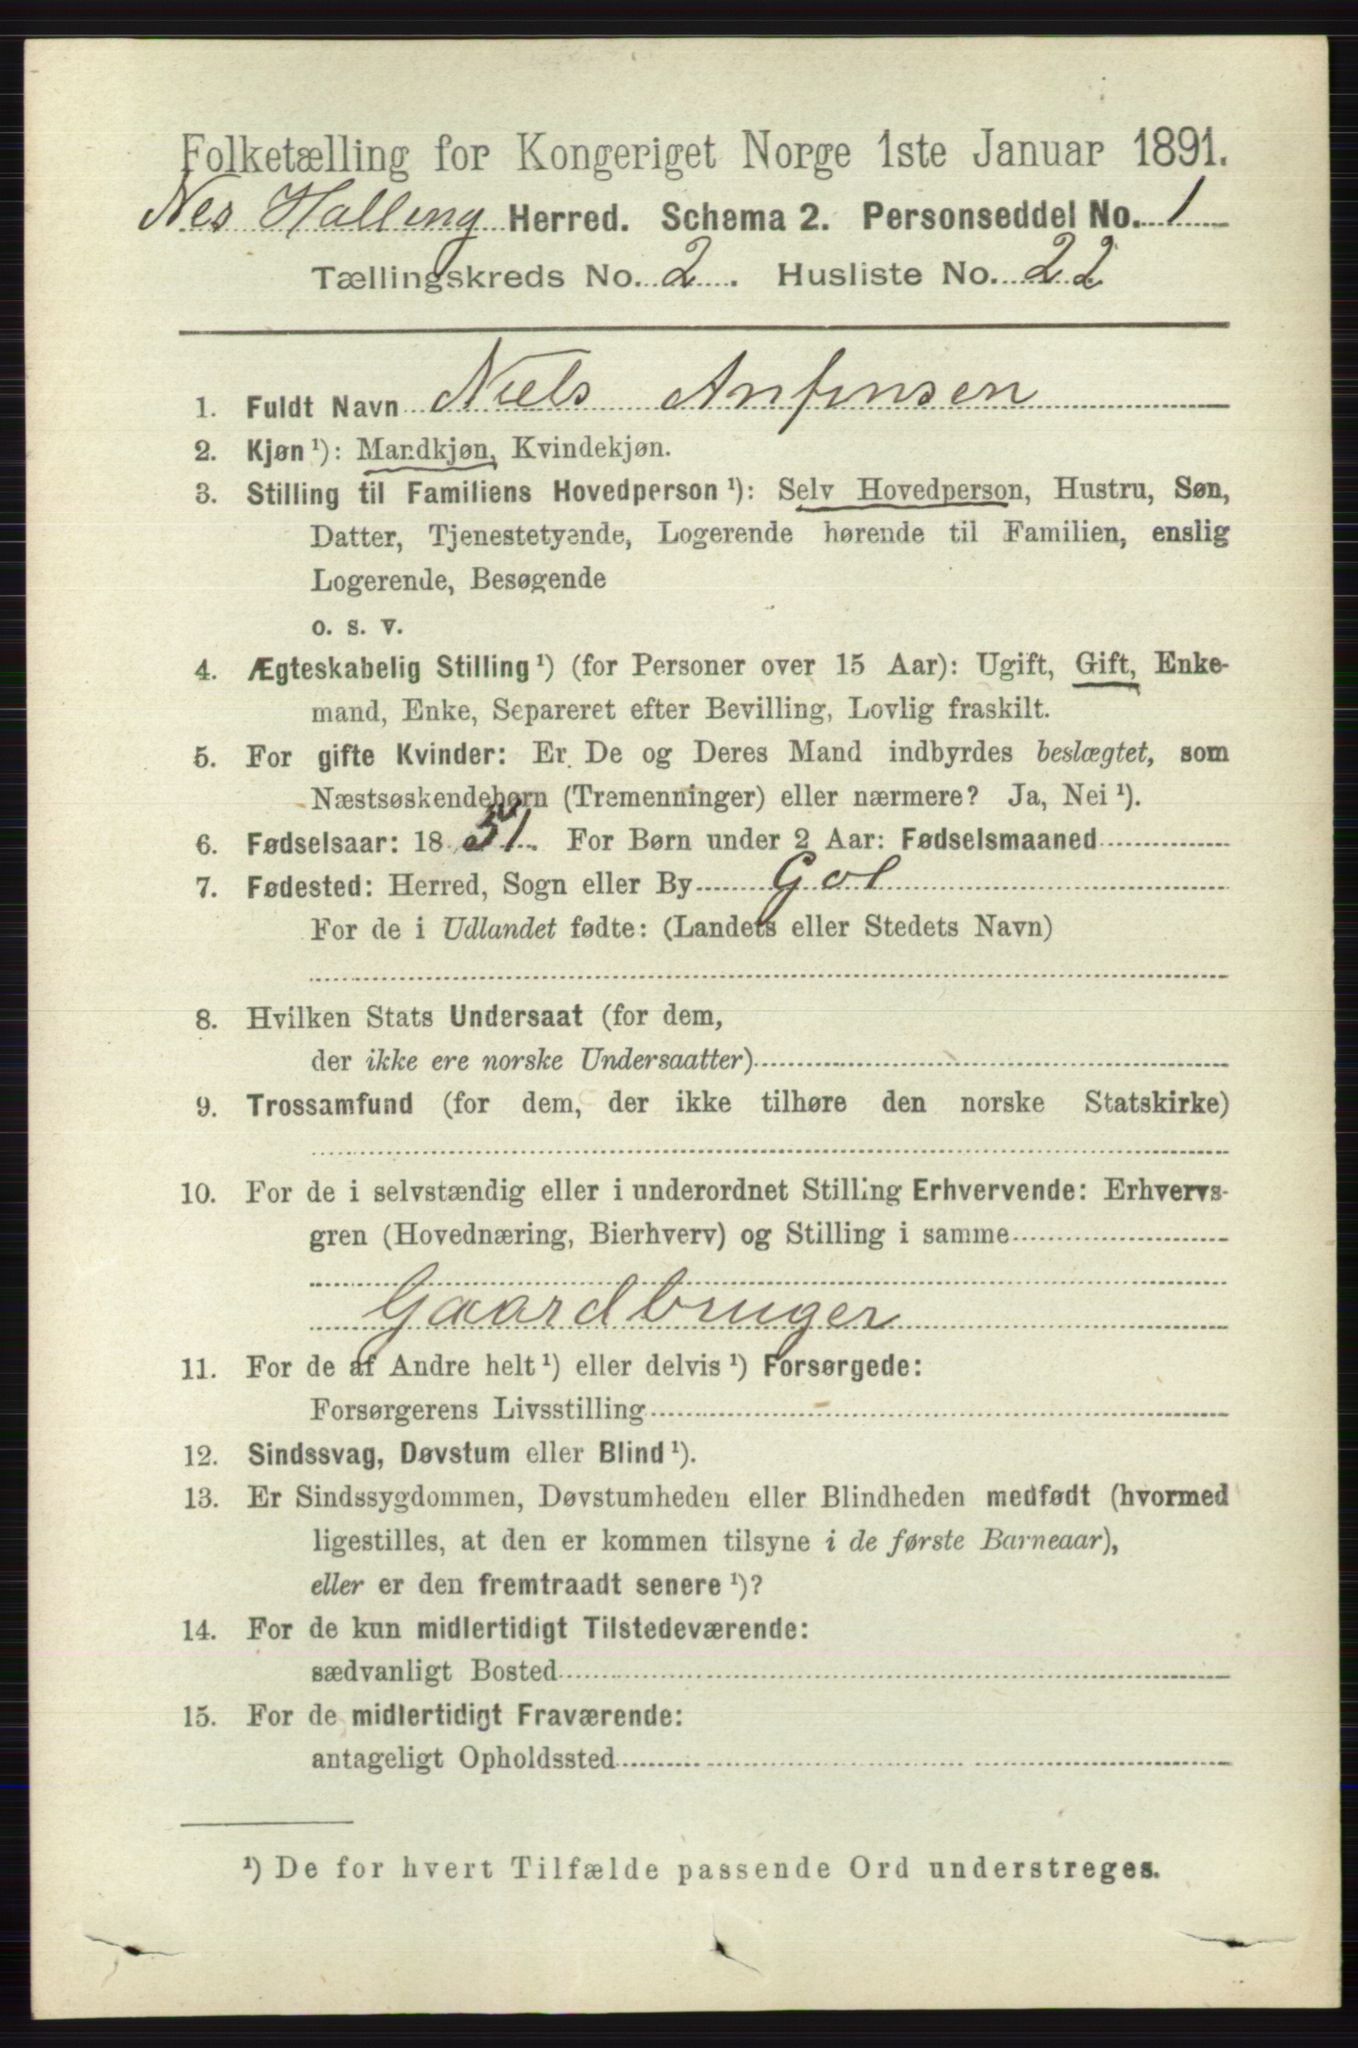 Folketælling for Kongeriget Norge 1ste Januar 1891.
Nes Halling Herred. Schema 2. Personseddel No. 1
Tællingskreds No. 2. Husliste No. 22
1. Fuldt Navn Niels Anfinsen
2. Kjøn ¹): Mandkjøn, Kvindekjøn.
3. Stilling til Familiens Hovedperson ¹): Selv Hovedperson, Hustru, Søn,
Datter, Tjenestetyende, Logerende hørende til Familien, enslig
Logerende, Besøgende
o. s. v.
4. Ægteskabelig Stilling ¹) (for Personer over 15 Aar): Ugift, Gift, Enke-
mand, Enke, Separeret efter Bevilling, Lovlig fraskilt.
5. For gifte Kvinder: Er De og Deres Mand indbyrdes beslægtet, som
Næstsøskendebørn (Tremenninger) eller nærmere? Ja, Nei ¹).
6. Fødselsaar: 1851. For Børn under 2 Aar: Fødselsmaaned
7. Fødested: Herred, Sogn eller By Gol
For de i Udlandet fødte: (Landets eller Stedets Navn)
8. Hvilken Stats Undersaat (for dem,
der ikke ere norske Undersaatter)
9. Trossamfund (for dem, der ikke tilhøre den norske Statskirke)
10. For de i selvstændig eller i underordnet Stilling Erhvervende: Erhvervs-
gren (Hovednæring, Bierhverv) og Stilling i samme
Gaardbruger
11. For de af Andre helt ¹) eller delvis ¹) Forsørgede:
Forsørgerens Livsstilling
12. Sindssvag, Døvstum eller Blind ¹).
13. Er Sindssygdommen, Døvstumheden eller Blindheden medfødt (hvormed
ligestilles, at den er kommen tilsyne i de første Barneaar),
eller er den fremtraadt senere ¹)?
14. For de kun midlertidigt Tilstedeværende:
sædvanligt Bosted
15. For de midlertidigt Fraværende:
antageligt Opholdssted
¹) De for hvert Tilfælde passende Ord understreges.